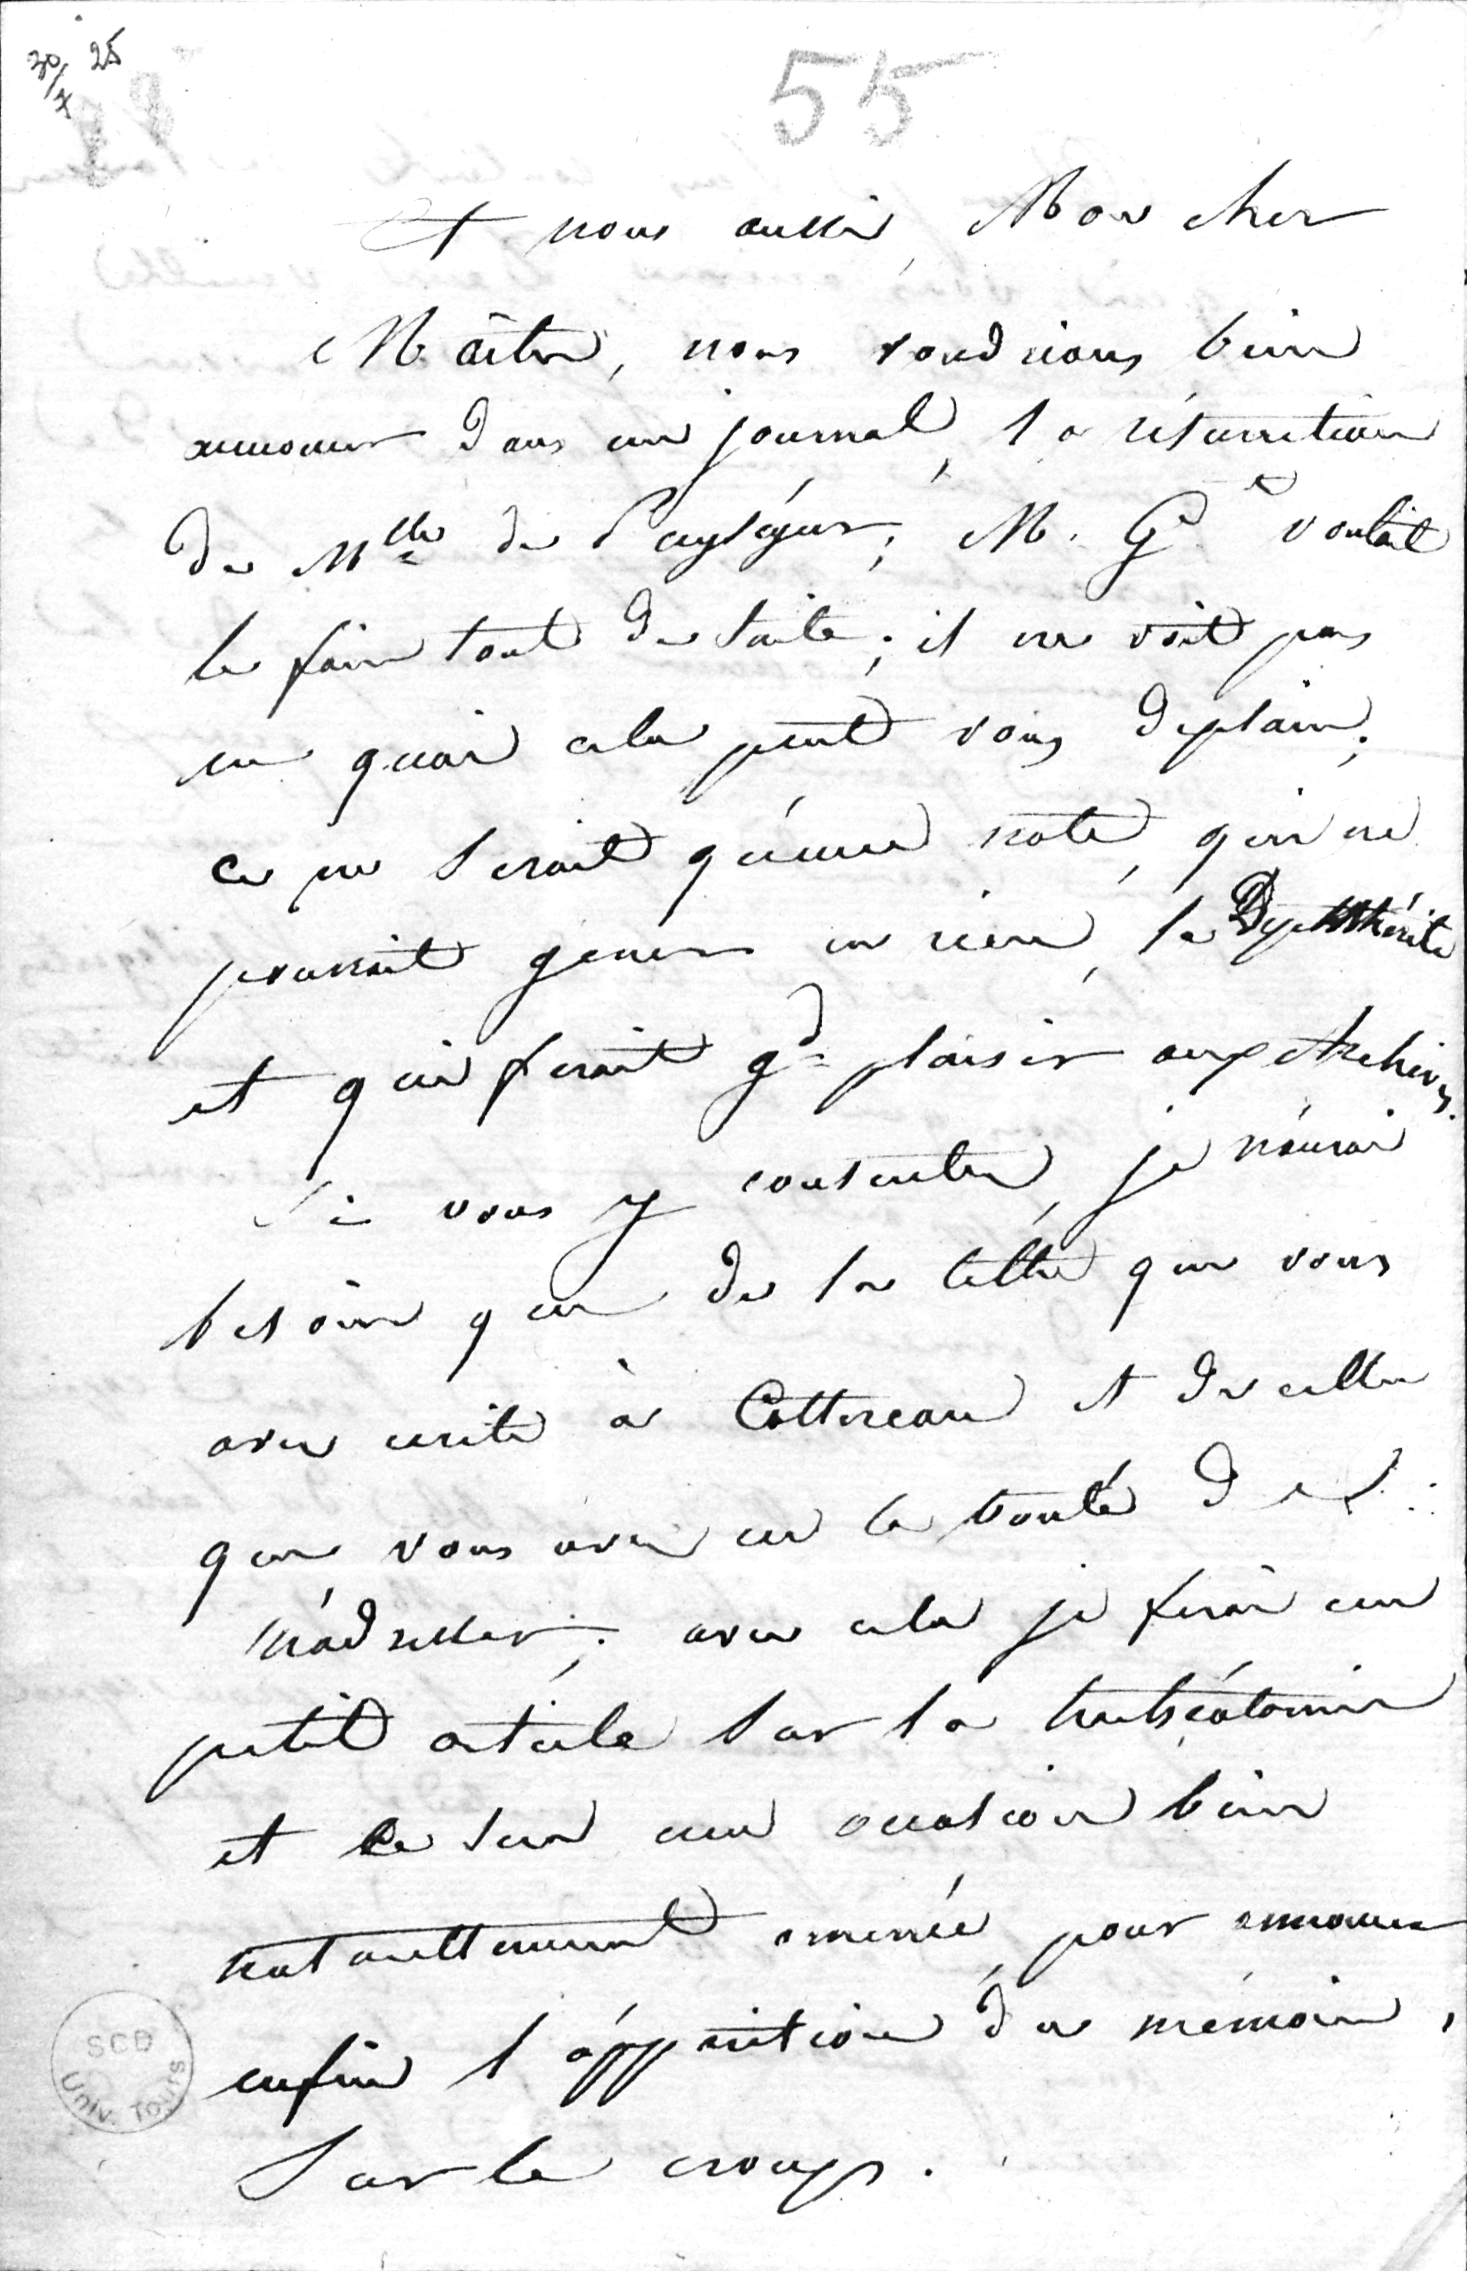 30/7 25
55
Et nous aussi, Mon cher
Maître, nous voudrions bien
annoncer dans un journal, la résurrection
de Mlle de Puységur; M. Gd voulait
le faire tout de suite; il ne voit pas
en quoi cela peut vous déplaire;
ce ne serait qu'une note, qui ne
pourrait gêner en rien, la Dyphthérite
et qui ferait gd plaisir aux Archives.
Si vous y consentez, je n'aurai
besoin que de la lettre que vous
avez écrite à Cottereau et de celle
que vous avez eu la bonté de
m'adresser; avec cela je ferai un
petit article sur la trachéotomie
et ce sera une occasion bien
naturellement amenée, pour annoncer
enfin l'apparition du mémoire,
sur le croup.
SCD
Univ. Tours